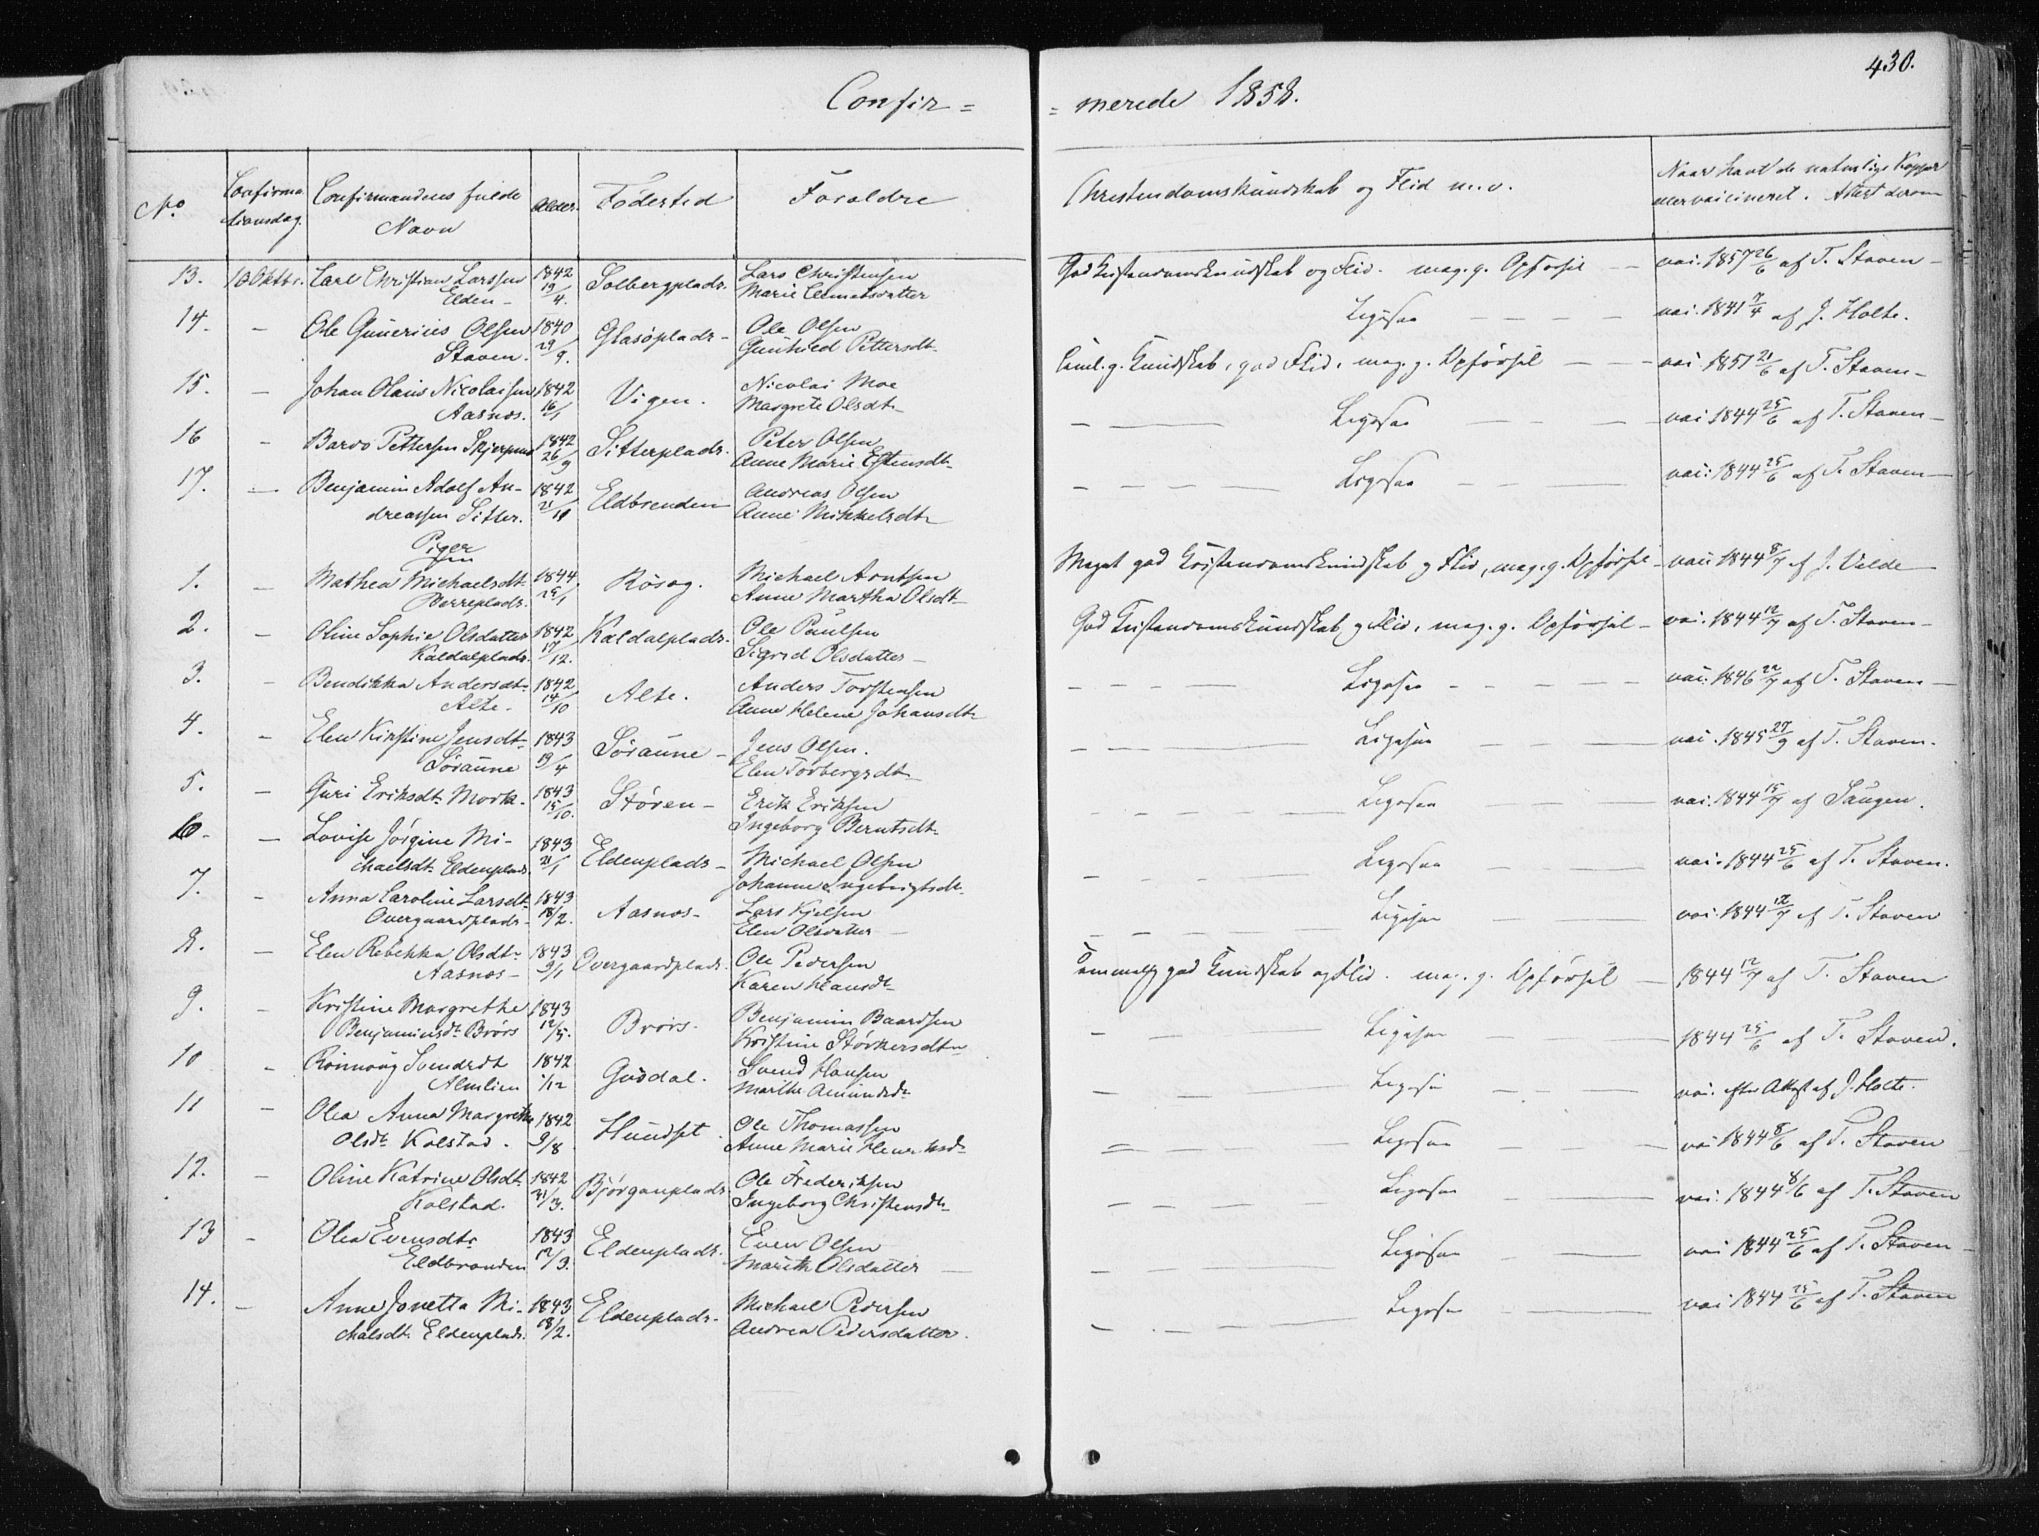 430.
Confir = = merede 1858.
No Confirmationsdag. Confirmandens fulde Navn Alder. Fødested Forældre Christendomskundskab og Flid m.v. Naar havt de naturlige Kopper eller vaccineret. Attest derom
13. 10 Oktbr. Carl Christian Larssen 1842 Solbergplads. Lars Christensen God Kristendomskundskab og Flid. meg. g. Opførsel — vac. 1857 26/6 af T. Staven —
Elden — 19/4. Marie Clemetsdatter
14. — Ole Gunerius Olsen 1840 Glasøplads — Ole Olsen Ligesaa — — — — vac. 1841 7/4 af J. Holte.
Staven. 29/9. Gunhild Pettersdt.
15. — Johan Olaus Nicolaisen 1842 Vigen. Nicolai Moe Teml. g. Kundskab, god Flid, meg. g. Opførsel — — vac. 1851 21/6 af T. Staven —
Aasnos. 16/1 Margrete Olsdt.
16 — Baro Pettersen 1842 Sitterplads. Peter Olsen — — — Ligesaa — — — vac. 1844 25/6 af T. Staven —
26/9 Anne Marie Estensdt.
17. — Benjamin Adolf An- 1842 Eldbrenden Andreas Olsen — — — — Ligesaa — — — vac. 1844 25/6 af T. Staven —
dreassen Sitter. 21/10 Anne Mikkelsdt.
Piger
1. — Mathea Michaelsdt. 1844. Rösag. Michael Arntsen Meget god Kristendomskundskab og Flid, meg. g. Opførsel — vac. 1844 8/7 af J. Velde —
25/1 Anne Martha Olsdt.
2. — Oline Sophie Olsdatter 1842 Kaldalplads. Ole Paulsen God Kristendomskundskab og Flid, meg. g. Opførsel — vac. 1844 12/7 af T. Staven —
Kaldalplads. 17/12. Sigrid Olsdatter —
3. — Bendikka Andersdt. 1842 Alte. Anders Torstensen — — — — Ligesaa — — — — vac. 1846 22/7 af T. Staven —
Alte. 14/10 Anne Helene Johansdt.
4. — Elen Kirstine Jensdt. 1843 Søraune — Jens Olsen. — — — Ligesaa — — — vac. 1845 27/9 af T. Staven.
Søraune 19/4 Elen Torbergsdt.
5. — Guri Eriksdt. Mork. 1843 Støren — Erik Eriksen — — — Ligesaa — — vac. 1844 15/7 af Saugen.
15/10. Ingeborg Berntsdt.
6. — Lovise Jørgine Mi- 1843 Eldenplads — Michael Olsen — — — — Ligesaa — — vac. 1844 25/6 af T. Staven.
chaelsdt. Eldenplads. 21/1 Johanne Ingebrigtsdt.
7. — Anna Caroline Larsdt. 1843 Aasnos — Lars Kjelsen — — — — Ligesaa — — vac. 1844 12/7 af T. Staven
Overgaardplads — 18/2. Elen Olsdatter —
8. — Elen Rebekka Olsdt. 1843 Overgaardplads. Ole Pedersen Temmelig god Kundskab og Flid. meg. g. Opførsel — 1844 12/7 af T. Staven
Aasnos — 9/1 Karen Hansdt.
9. — Kristine Margrethe 1843 Brørs. Benjamin Baardsen — — — — Ligesaa — — — 1844 25/6 af T. Staven.
Benjaminsdt. Brørs 12/5. Kristine Størkersdtr
10 — Rønnoug Svendsdt 1842 Gusdal. Svend Hansen — — — — Ligesaa — — — vac. efter Attest af J. Holte.
Almlien 1/12 Marthe Amundsdt.
11 — Olea Anna Margrethe 1842 Hundset. Ole Thomassen — — — — Ligesaa — — — vac 1844 8/6 af T. Staven
Olsdt. Kolstad. 9/8 Anne Marie Henriksdt.
12. — Oline Katrine Olsdt. 1842 Bjørganplads. Ole Frederiksen — — — — Ligesaa — — vac. 1844 8/6 af T. Staven
Kolstad. 21/3. Ingeborg Christensdt.
13 — Olea Evensdtr 1843 Eldenplads. Even Olsen — — — Ligesaa — — vac 1844 25/6 af T. Staven —
Eldbranden 12/3. Marith Olsdatter —
14. — Anne Jonetta Mi- 1843 Eldenplads. Michael Pedersen — — — — Ligesaa — — vac. 1844 25/6 af T. Staven
chalsdt. Eldenplads. 18/2. Andrea Pedersdatter.